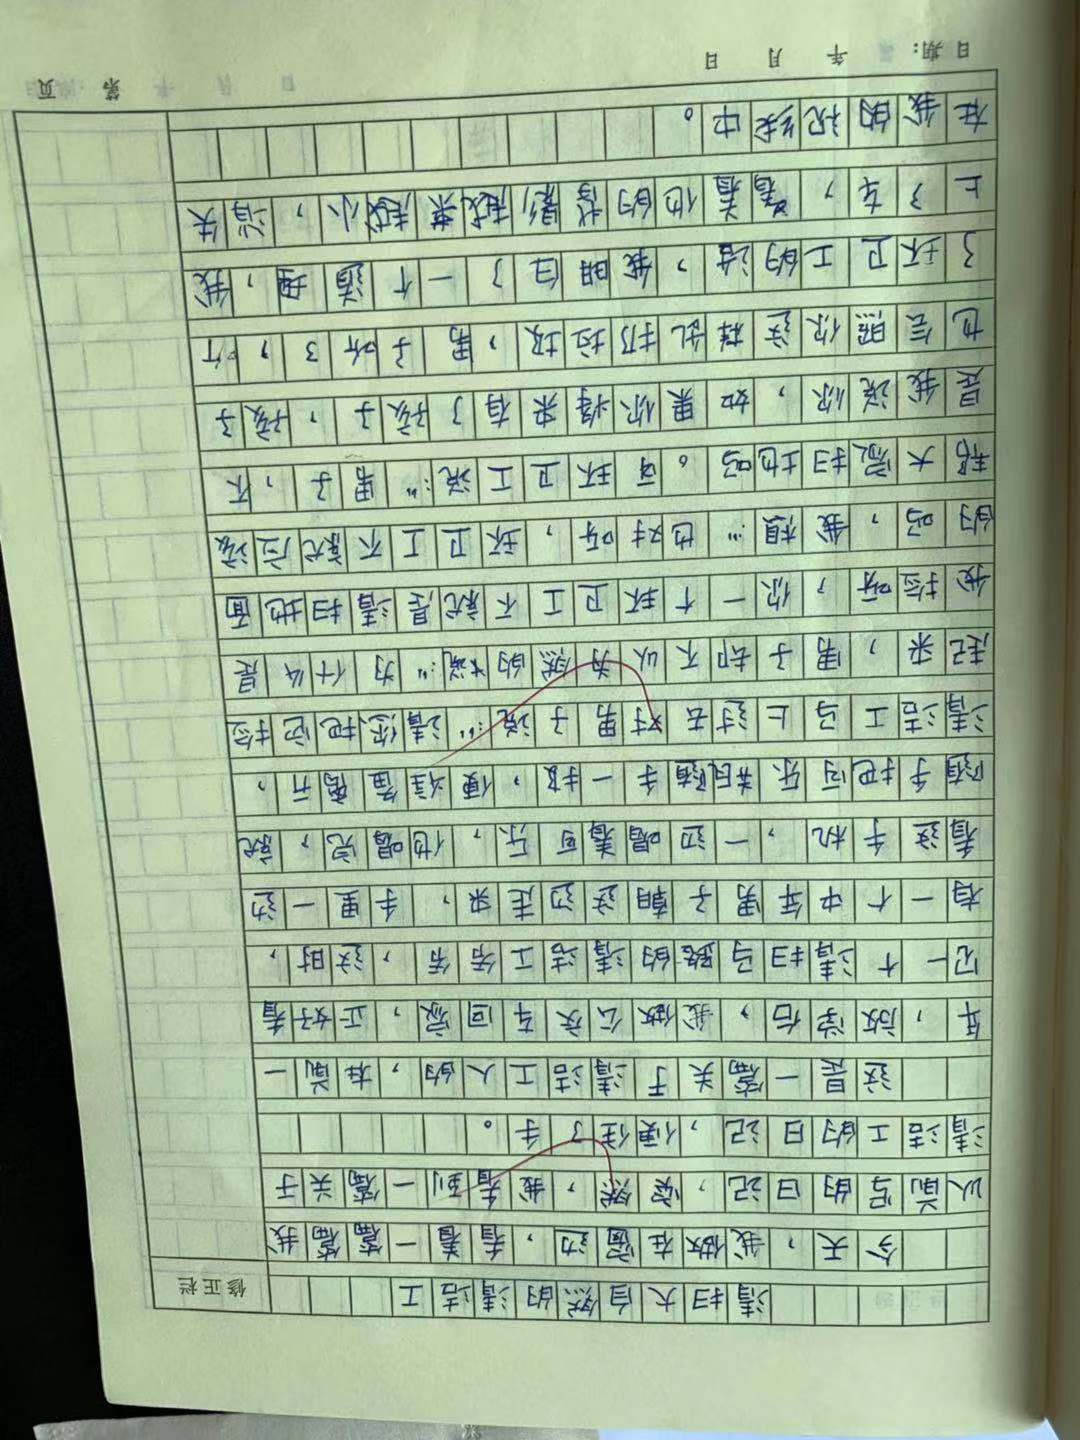 清扫大自然的清洁工
修正栏
今天，我做在窗边，看着一篇篇我
以前写的日记，突然，我看到一篇关于
清洁工的日记，便住了手。
这是一篇关于清洁工人的，在前一
年，放学后，我做公交车回家，正好看
见一个清扫马路的清洁工劳劳，这时，
有一个中年男子朝这边走来，手里一边
看这手机，一边喝着可乐，他喝完，就
随手把可乐瓶随手一扔，便径直离开，
清洁工马上过去对男子说：“请您把它捡
起来，男子却不以为然的说：“为什么是
我捡呀，你一个环卫工不就是清扫地面
的吗，我想：“也对呀，环卫工不就应该
帮大家扫地吗。可环卫工说：“男子，不
是我说你，如果你将来有了孩子，孩子
也会照你这样乱扔垃圾，男子听了，听
了环卫工的话，我明白了一个道理，我
上了车，看着他的背影越来越小，消失
在我的视线中。
日期： 年 月 日
第 页